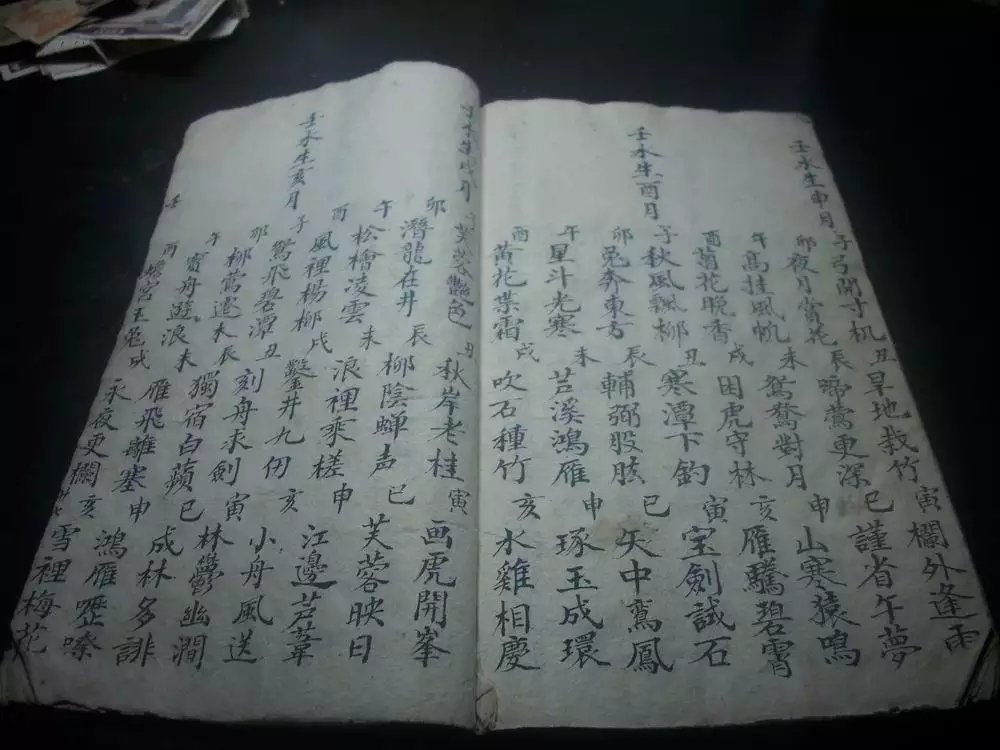 壬水生申月
子弓開寸机 丑旱地栽竹 寅欄外逢雨
卯夜月賞花 辰啼鶯更深 巳謹省午夢
午高挂風帆 未鴛鴦對月 申山寒猿鳴
酉菊花晚香 戌困虎守林 亥雁騰碧霄
壬水生酉月
子秋風飄柳 丑寒潭下釣 寅宝劍試石
卯兔奔東方 辰輔弼股肱 巳矢中鸞鳳
午星斗光寒 未芦溪鴻雁 申琢玉成環
酉黃花葉霜 戌吹石種竹 亥水雞相慶
壬水生戌月
芙蓉艷色 丑秋岸老桂 寅画虎開峯
卯潛龍在井 辰柳陰蝉声 巳芙蓉映日
午松檜凌雲 未浪裡乘槎 申江邊芦葦
酉風裡楊柳 戌鑿井九仞 亥小舟風送
壬水生亥月
子鴛飛碧潭 丑刻舟求劍 寅林鬱幽澗
卯柳鶯遷木 辰獨宿白蘋 巳成林多誹
午寶舟遊浪 未雁飛離塞 申鴻雁嚦嗦
酉蟾宮玉兔 戌永夜更欄 亥雪裡梅花
壬